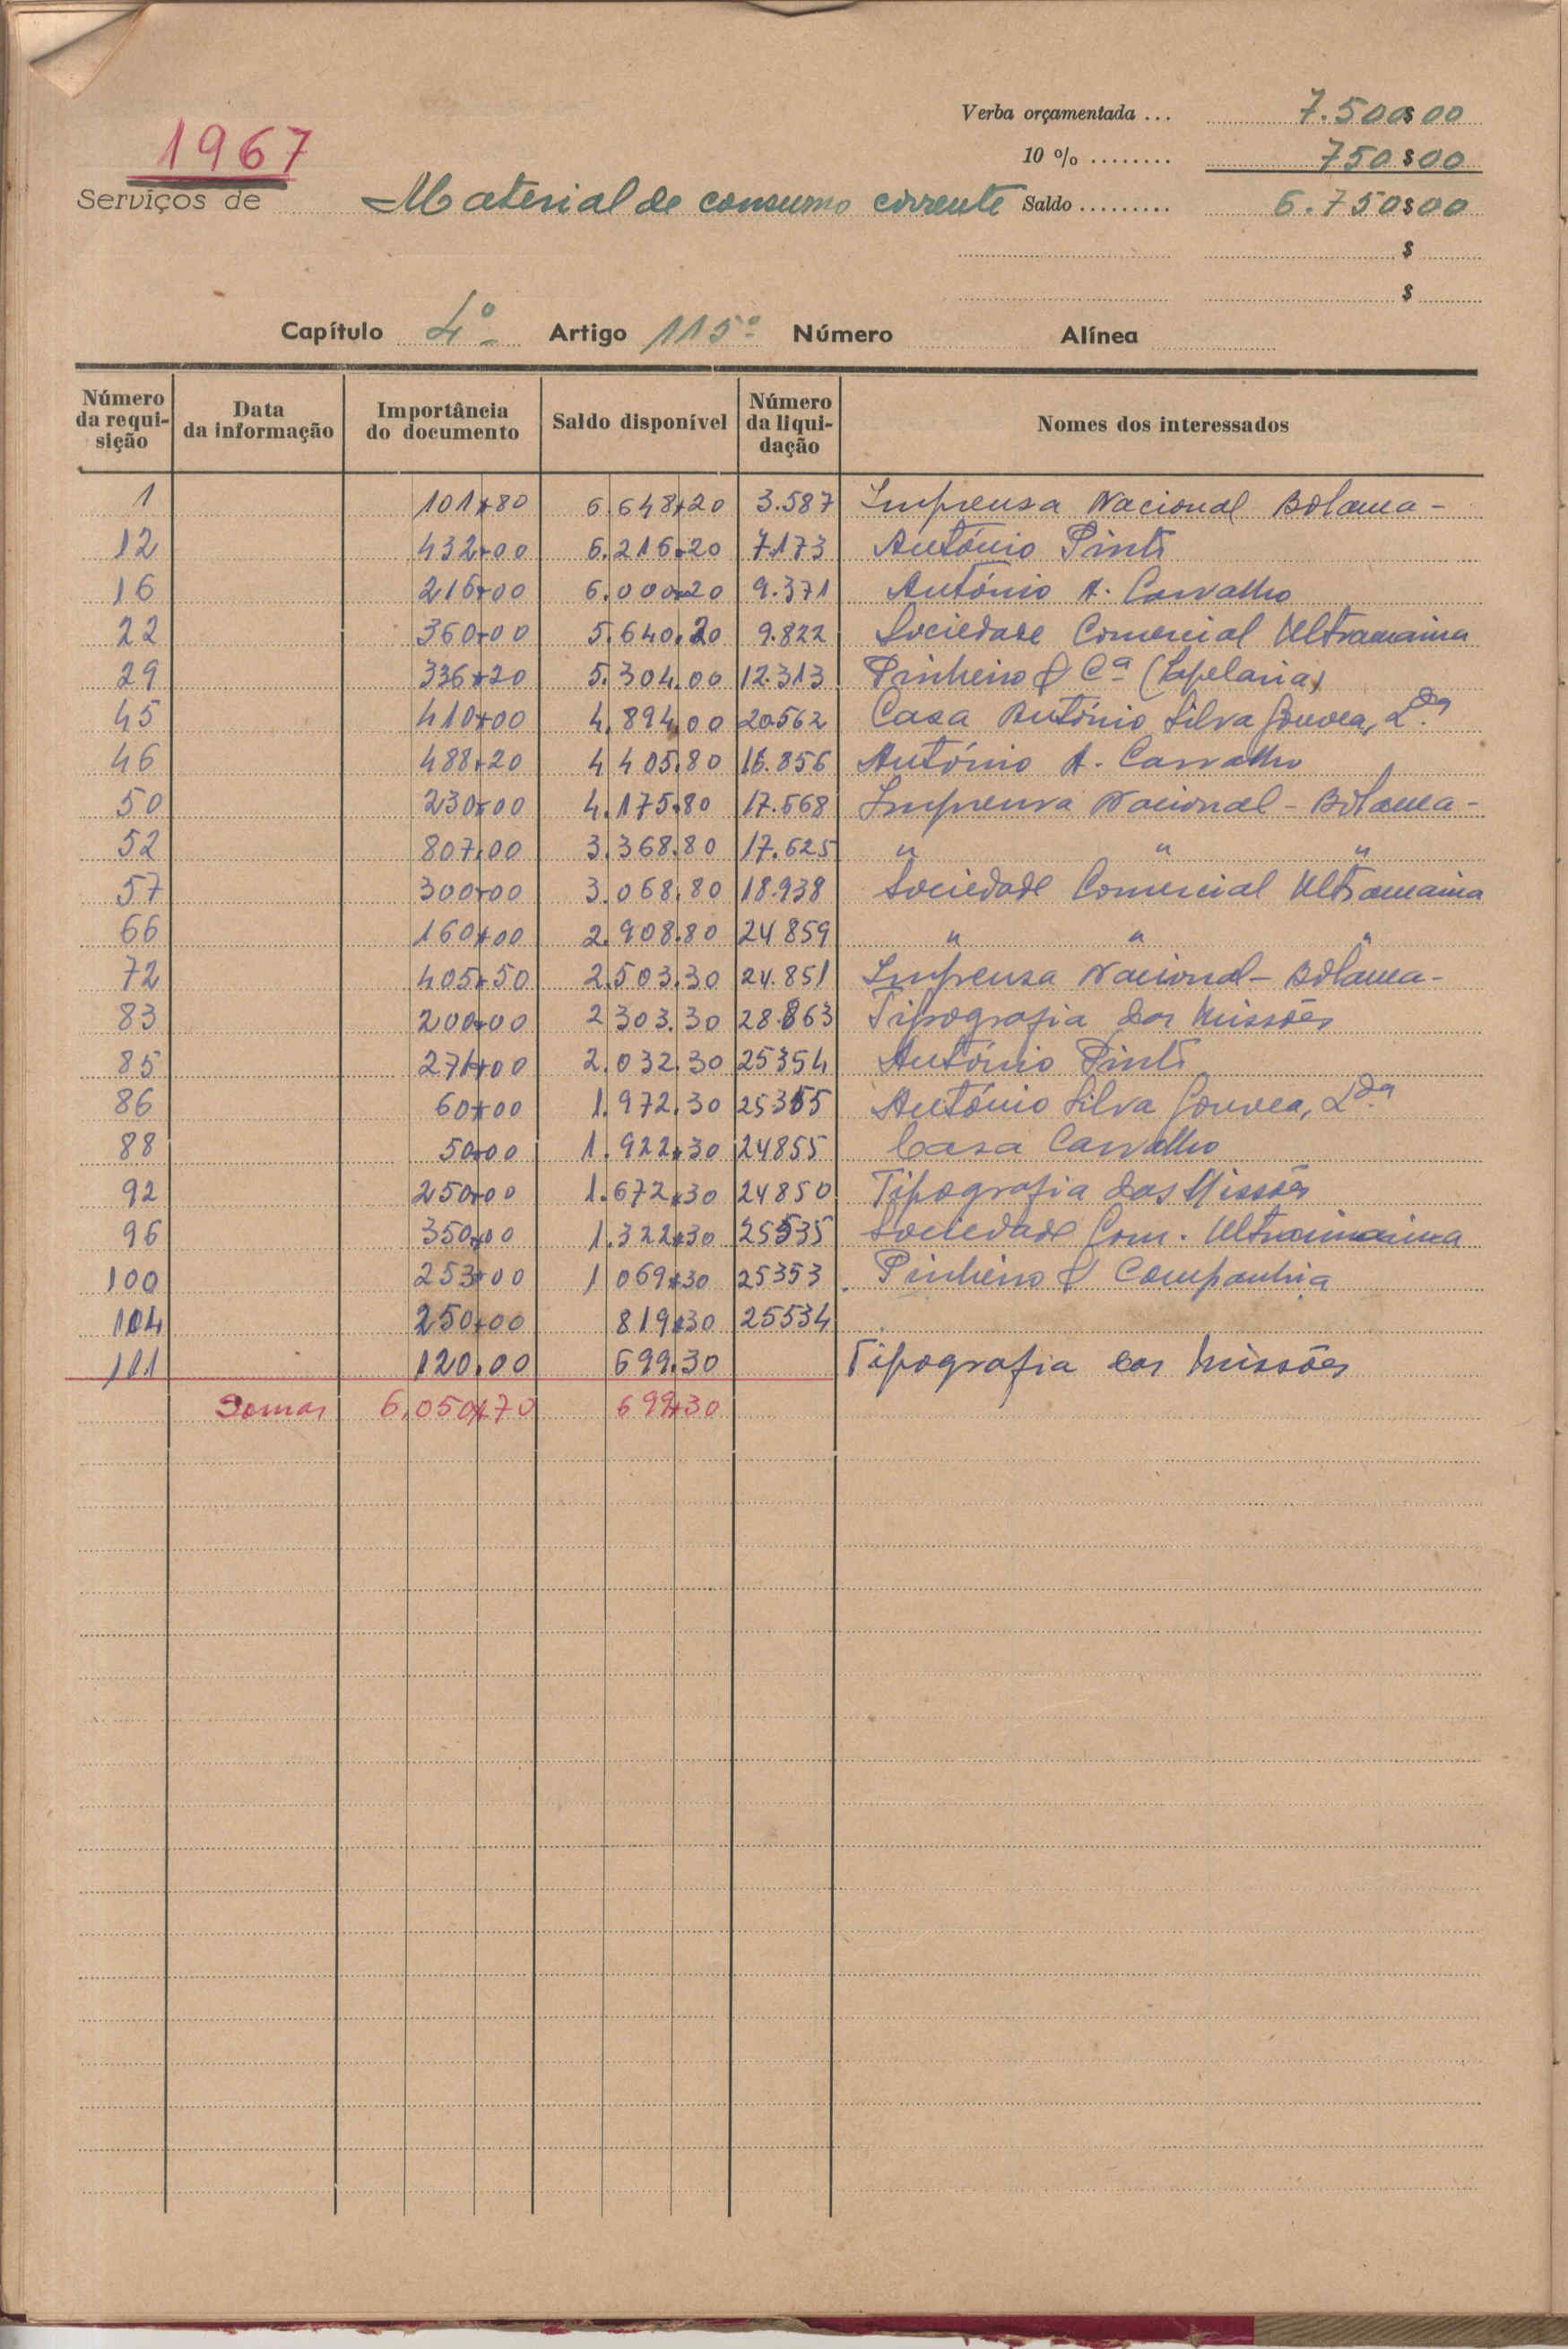 Verba orçamentada ... 7.500$00
1967
10 % ........ 750$00
Serviços de Material de consumo corrente Saldo ......... 6.750$00
$
$
Capítulo 4º Artigo 115º Número Alínea
Número da requisição Data da informação Importância do documento Saldo disponível Número da liquidação Nomes dos interessados
1 101$80 6.648$20 3.587 Imprensa Nacional Bolama -
12 432$00 6.216$20 7.173 António Pinto
16 216$00 6.000$20 9.371 António A. Carvalho
22 360$00 5.640.20 9.822 Sociedade Comercial Ultramarina
29 336$20 5.304.00 12.313 Pinheiro & Cª (Papelaria)
45 410$00 4.894.00 20562 Casa António Silva Gouvea, Ldª
46 488$20 4 405.80 16.856 António A. Carvalho
50 230$00 4.175.80 17.568 Imprensa Nacional - Bolama -
52 807.00 3.368.80 17.625 " " "
57 300$00 3.068.80 18.938 Sociedade Comercial Ultramarina
66 160$00 2.908.80 24 859 " " "
72 405$50 2.503.30 24.851 Imprensa Nacional - Bolama -
83 200$00 2 303.30 28.863 Tipografia das Missões
85 271$00 2.032.30 25354 António Pinto
86 60$00 1.972.30 25355 António Silva Gouvea, Ldª
88 50$00 1.922$30 24855 Casa Carvalho
92 250$00 1.672$30 24850 Tipografia das Missões
96 350$00 1.322$30 25535 Sociedade Com. Ultramarina
100 253$00 1 069$30 25353 Pinheiro & Companhia
104 250$00 819$30 25534
111 120.00 699.30 Tipografia das Missões
Somas 6.050$70 699$30